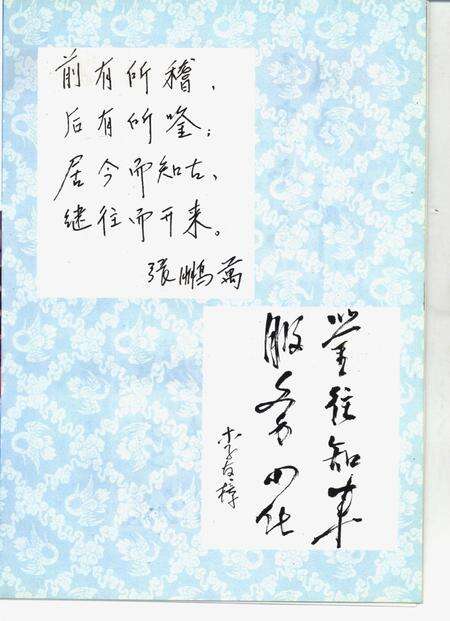 前有所稽,
后有所鉴;
居今而知古,
继往而开来。
張鵬萬
鉴往知来
服务四化
李友樟